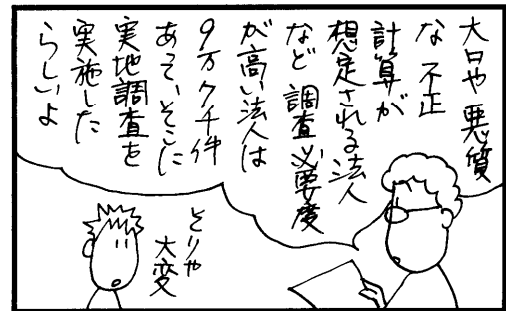 大口や悪質
な不正
計算が
想定される法人
など調査必要度
が高い法人は
9万7千件
あって、そこに
実地調査を
実施した
らしいよ
そりゃ
大変